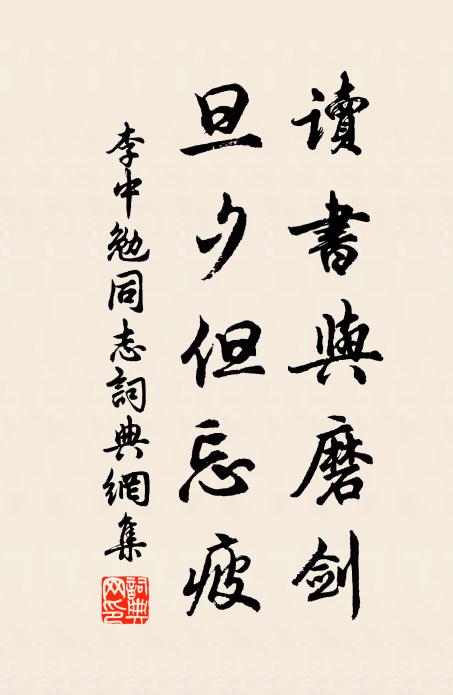 讀書與磨劍
旦夕但忘疲
李中勉同志詞典網集
詞典網印